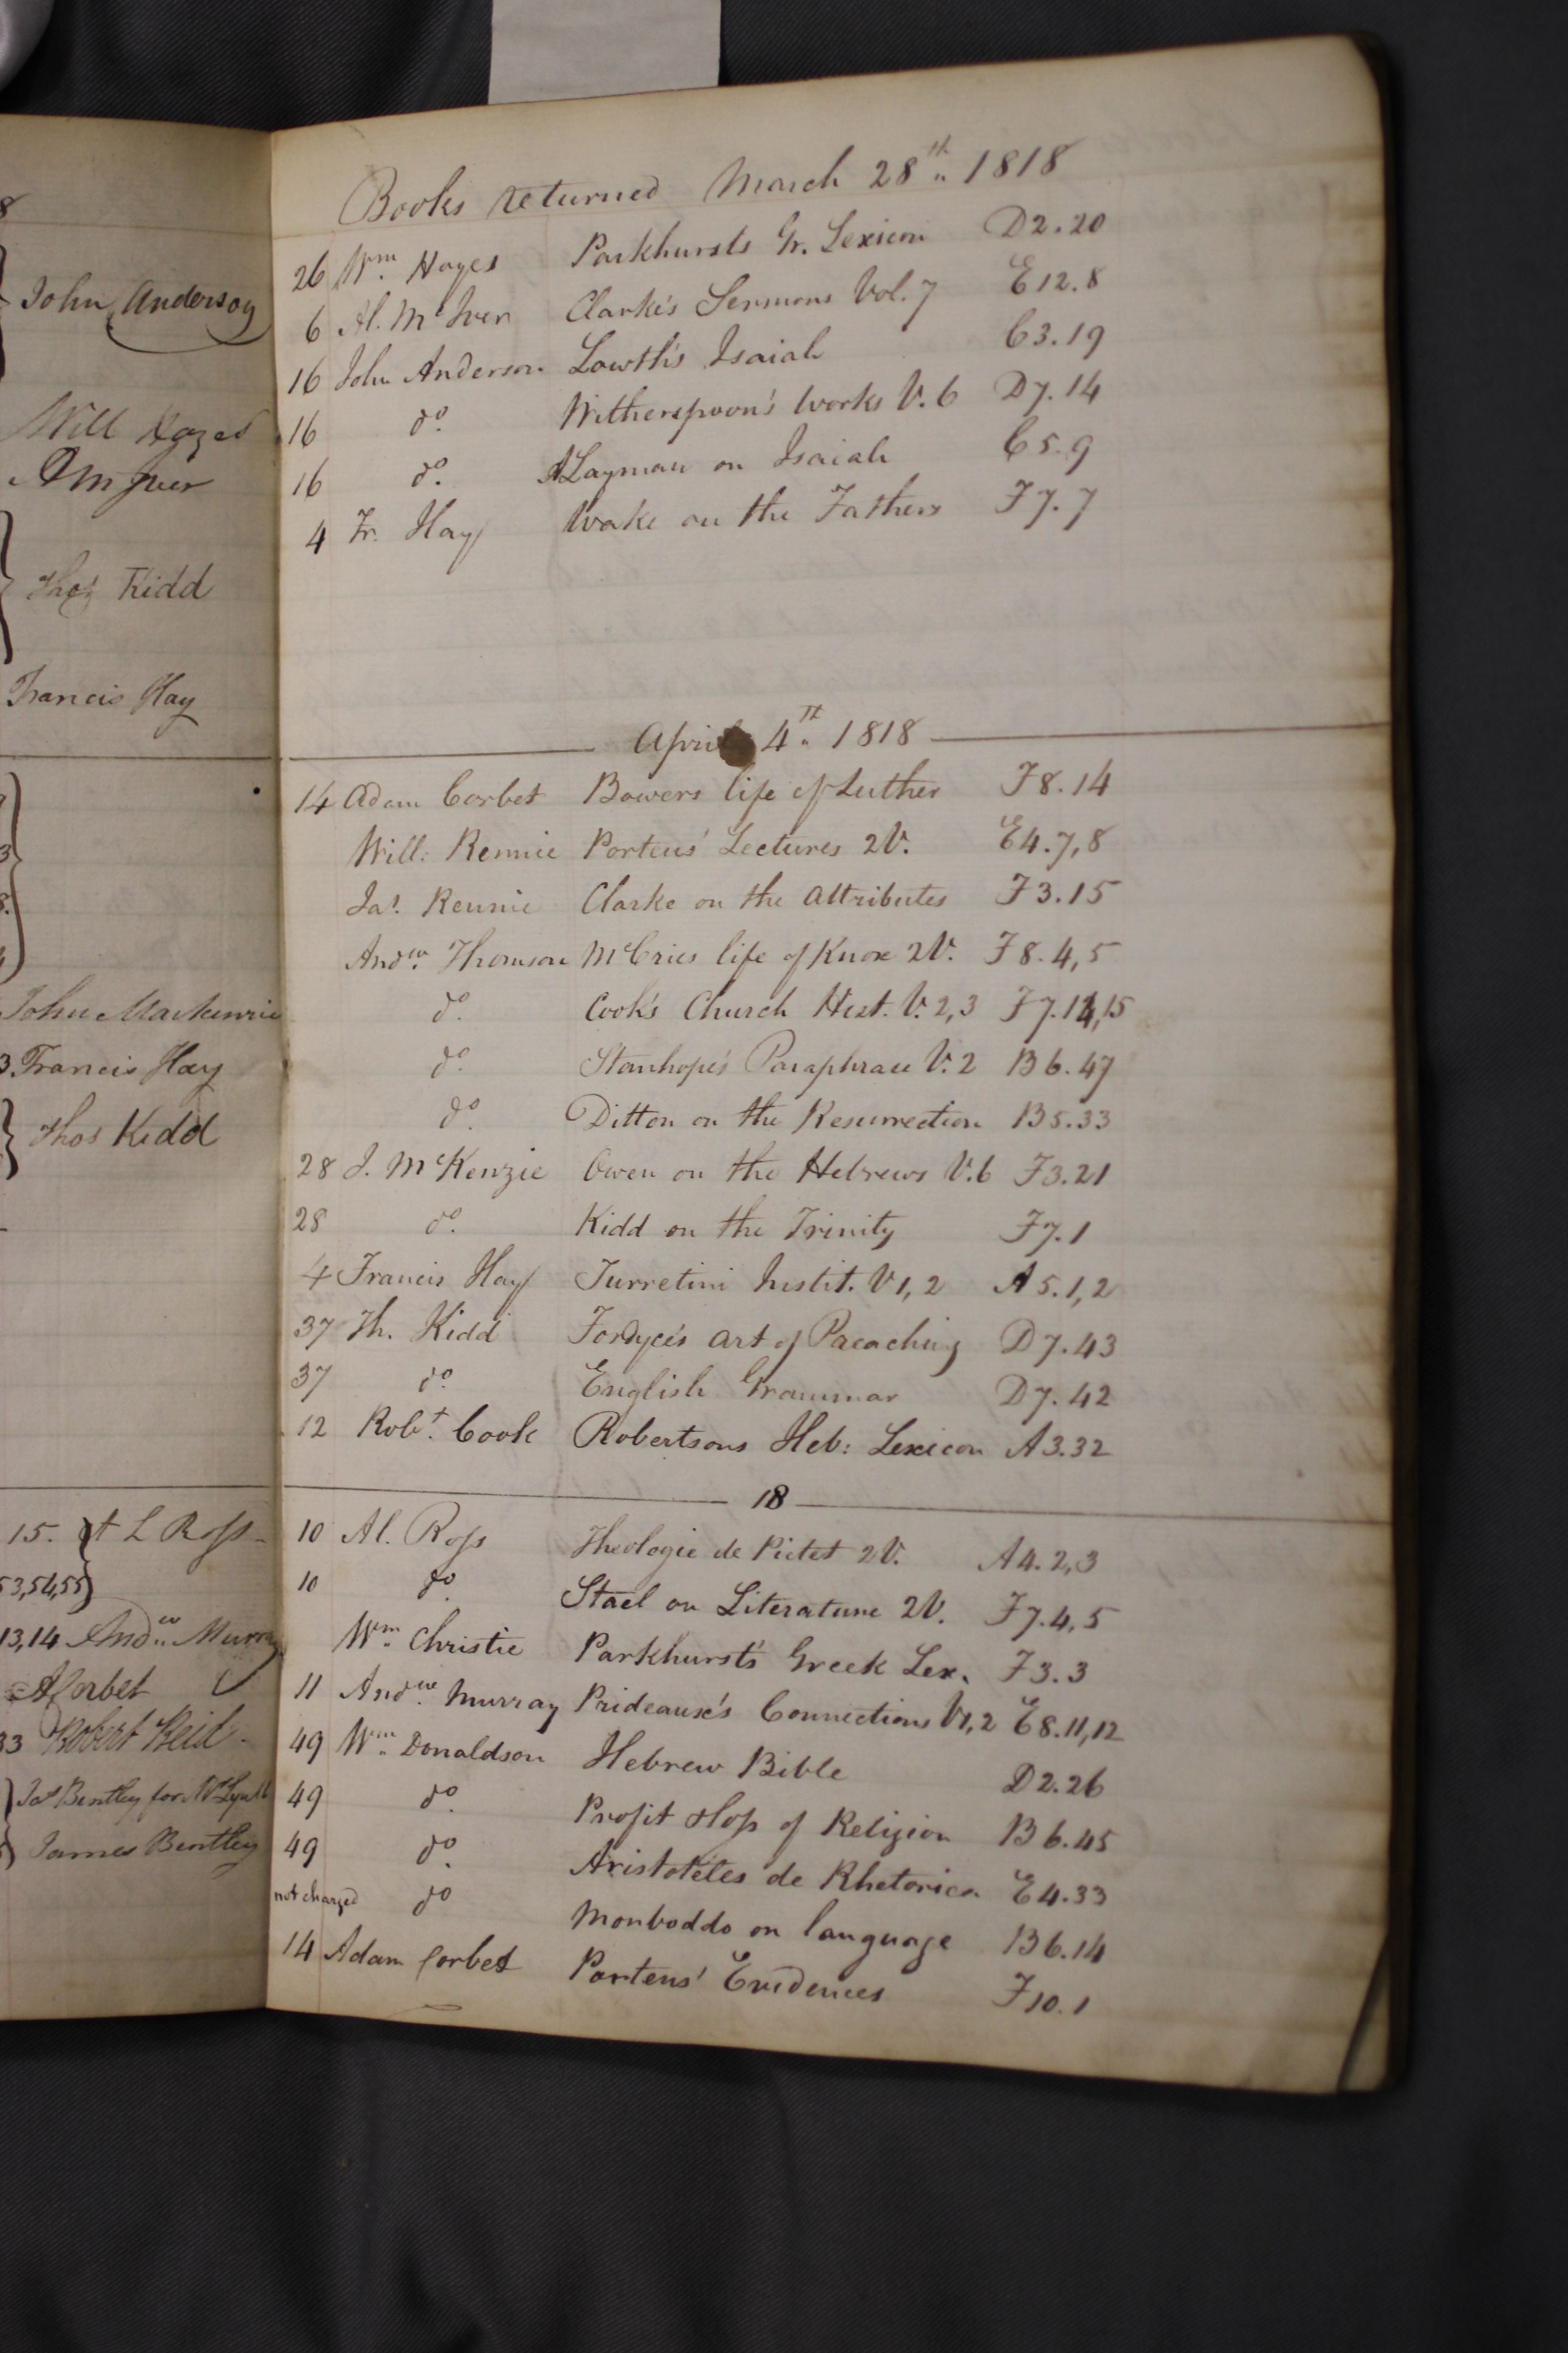 8
John Anderson
Will Hayes
A McIver
Thos Kidd
Francis Hay
John Mackenzie
3. Francis Hay
Thos Kidd
15. A L Ross
53,54,55
13,14 Andw. Murray
A Corbet
33 Robert Reid
Jas Bentley for
James Bentley
Books returned March 28th. 1818
26 Wm. Hayes Parkhursts Gr. Lexicon D2.20
6 Al. McIver Clarke's Sermons Vol. 7 E12.8
16 John Anderson Lowth's Isaiah C3.19
16 do. Witherspoon's works V. 6 D7.14
16 do. A Layman on Isaiah C5.9
4 Fr. Hay Wake on the Fathers F7.7
April 4th. 1818
14 Adam Corbet Bowers life of Luther F8.14
Will: Rennie Porteus' Lectures 2V. E4.7,8
Jas. Rennie Clarke on the Attributes F3.15
Andw. Thomson McCries life of Knox 2V. F8.4,5
do. Cook's Church Hist. V. 2,3 F7.14,15
do. Stanhope's Paraphrase V. 2 B6.47
do. Ditton on the Resurrection B5.33
28 J. McKenzie Owen on the Hebrews V. 6 F3.21
28 do. Kidd on the Trinity F7.1
4 Francis Hay Turretini Instit. V1,2 A5.1,2
37 Th. Kidd Fordyce's art of Preaching D7.43
37 do. English Grammar D7.42
12 Robt. Cook Robertsons Heb: Lexicon A3.32
18
10 Al. Ross Theologie de Pictet 2V. A4.2,3
10 do. Stael on Literature 2V. F7.4,5
Wm. Christie Parkhurst's Greek Lex. F3.3
11 Andw. Murray Prideaux's Connections V1,2 E8.11,12
49 Wm. Donaldson Hebrew Bible D2.26
49 do. Profit & loss of Religion B6.45
49 do. Aristoteles de Rhetorica E4.33
not charged do Monboddo on language B6.14
14 Adam Corbet Porteus' Evidences F10.1